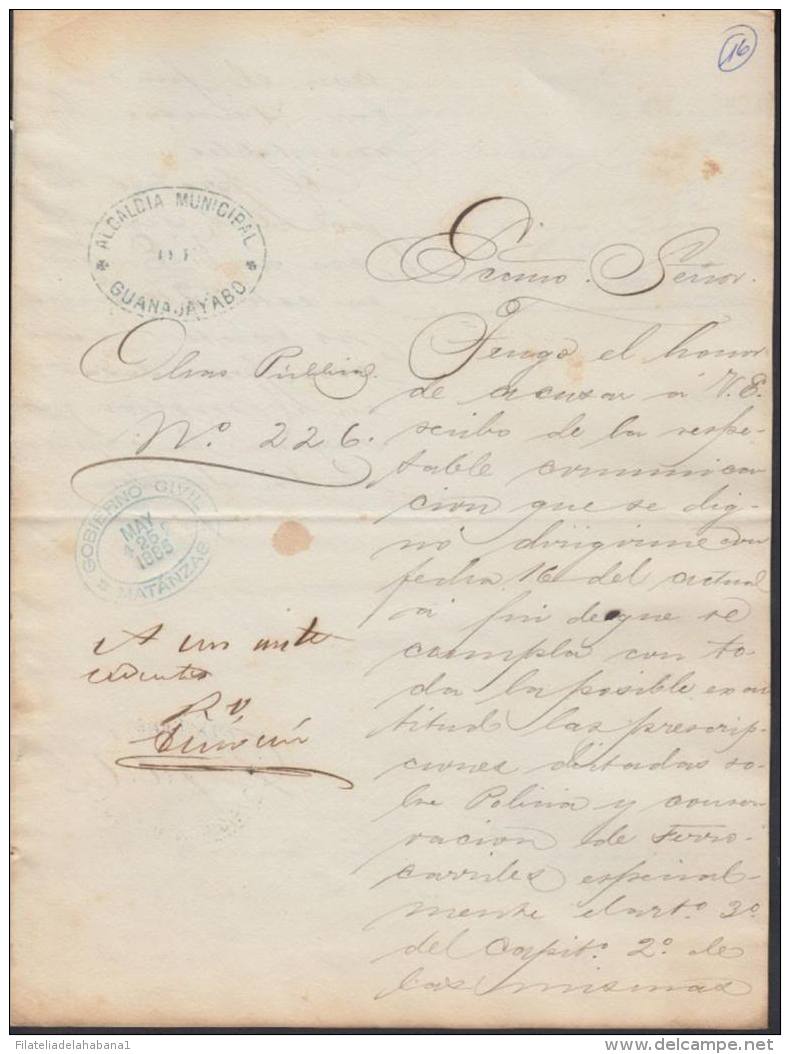 16
ALCALDIA MUNICIPAL
DE
GUANAJAYABO
Obras Públicas.
Nº 226.
GOBIERNO CIVIL
MAY
25
1885
MATANZAS
A sus ante
cedentes
Ecsmo. Señor.
Tengo el honor
de acusar á V.E.
recibo de la respe-
table comunica-
cion que se dig-
nó dirigirme con
fecha 16 del actual
á fin de que se
cumpla con to-
da la posible exac
titud las prescrip-
ciones dictadas so-
bre Policia y conser-
vacion de Ferro-
carriles especial-
mente el artº 3º
del Capitº 2º de
las mismas
Filateliadelahabana1
delcampe.net